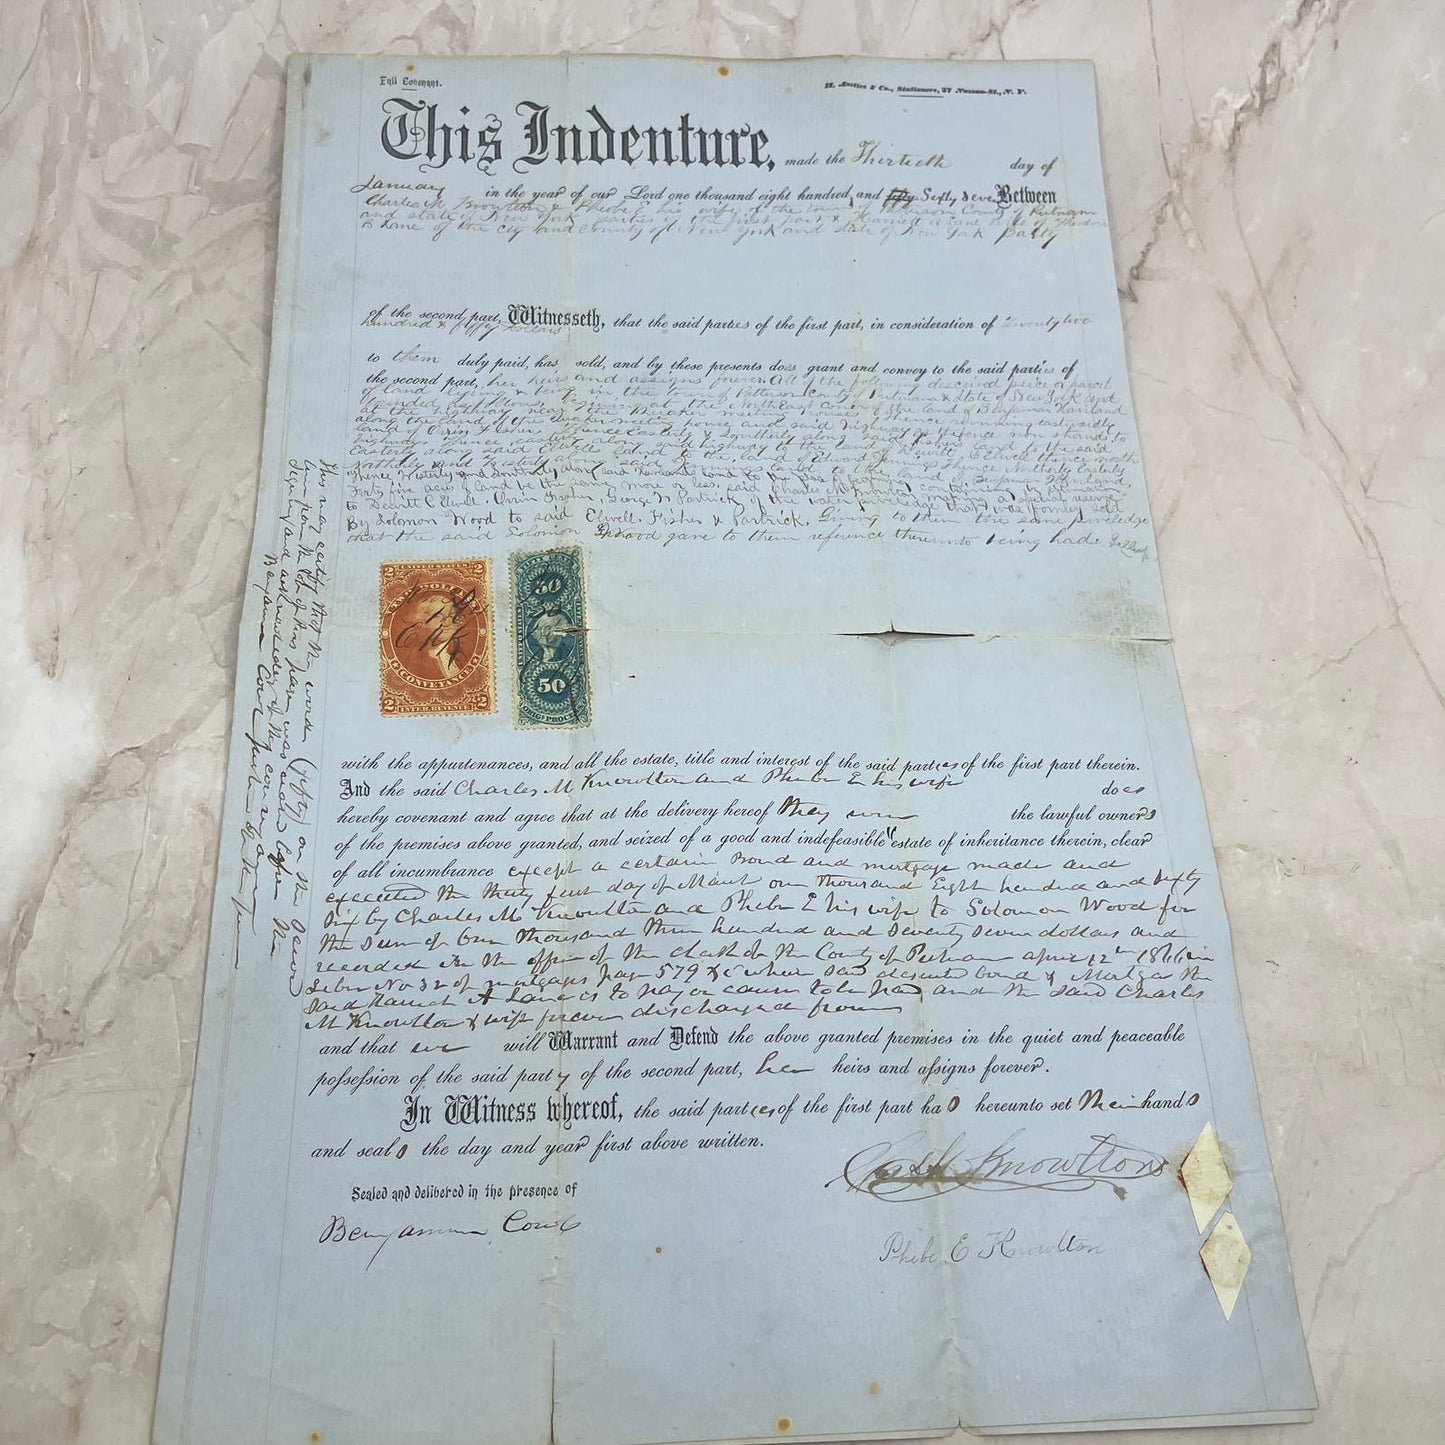 Full Covenant.
& Co., Stationers, 27 Nassau-St., N. Y.
This Indenture, made the Thirtieth day of
January in the year of our Lord one thousand eight hundred and fifty Sixty Seven Between
Charles M. Knowlton & Phebe E his wife of the Patterson County of Putnam
and state of New York parties of the first part & Harriet A Lane wife of Theodore
Lane of the city and County of New York and state of New York party
of the second part, Witnesseth, that the said parties of the first part, in consideration of Twenty two
hundred & fifty Dollars
to them duly paid, has sold, and by these presents does grant and convey to the said parties of
the second part, her heirs and assigns forever. All of the following described peice or parcel
of land lying & being in the town of Patterson County of Putnam & State of New York
bounded as follows Begining at the North East corner of the land of Benjamin
at the highway near the Quaker meeting house, thence running easterdly
along the land of the Quaker meeting house and said highway to
land of Orrin Fisher, thence Easterly & Southerly along said
highway thence easterly along said highway to the land
Easterly along said land to the land of Edward Elwell thence north
Northerly and Easterly along said land to the land of thence Northerly Easterly
thence Westerly and Southerly along said land to the place of begining containing
Forty five acres of land be the same more or less. said Charles M Knowlton making a special reserve
to Dewitt C Elwell, Orrin Fisher, George W Partrick of the water priveledge that was formerly sold
By Solomon Wood to said Elwell, Fisher & Partrick. Giving to them the same priveledge
that the said Solomon Wood gave to them reference thereunto being had
UNITED STATES
TWO DOLLARS
2 2
CONVEYANCE
2 INTER. REVENUE 2
50
50
ORIG. PROCESS
with the appurtenances, and all the estate, title and interest of the said parties of the first part therein.
And the said Charles M Knowlton and Phebe E his wife does
hereby covenant and agree that at the delivery hereof they were the lawful owners
of the premises above granted, and seized of a good and indefeasible estate of inheritance therein, clear
of all incumbrance except a certain Bond and mortgage made and
executed the thirty first day of March one thousand Eight hundred and sixty
Six by Charles M Knowlton and Phebe E his wife to Solomon Wood for
the Sum of One thousand three hundred and Seventy Seven dollars and
recorded in the office of the clerk of the County of Putnam april 12th 1866 in
Liber No 32 of mortgages page 579 &c which said descrited bond & Mortgage the
said Harriet A Lane is to pay or cause to be paid and the said Charles
M Knowlton & wife forever discharged from
and that we will Warrant and Defend the above granted premises in the quiet and peaceable
possession of the said party of the second part, her heirs and assigns forever.
In Witness whereof, the said parties of the first part has hereunto set their hands
and seals the day and year first above written.
Sealed and delivered in the presence of
Benjamin Cowl
Chas M Knowlton
Phebe E Knowlton
This may certify that the words (fifty) on the Seven
line from the of this page was before the
signing and acknowledge of the
Benjamin Cowl